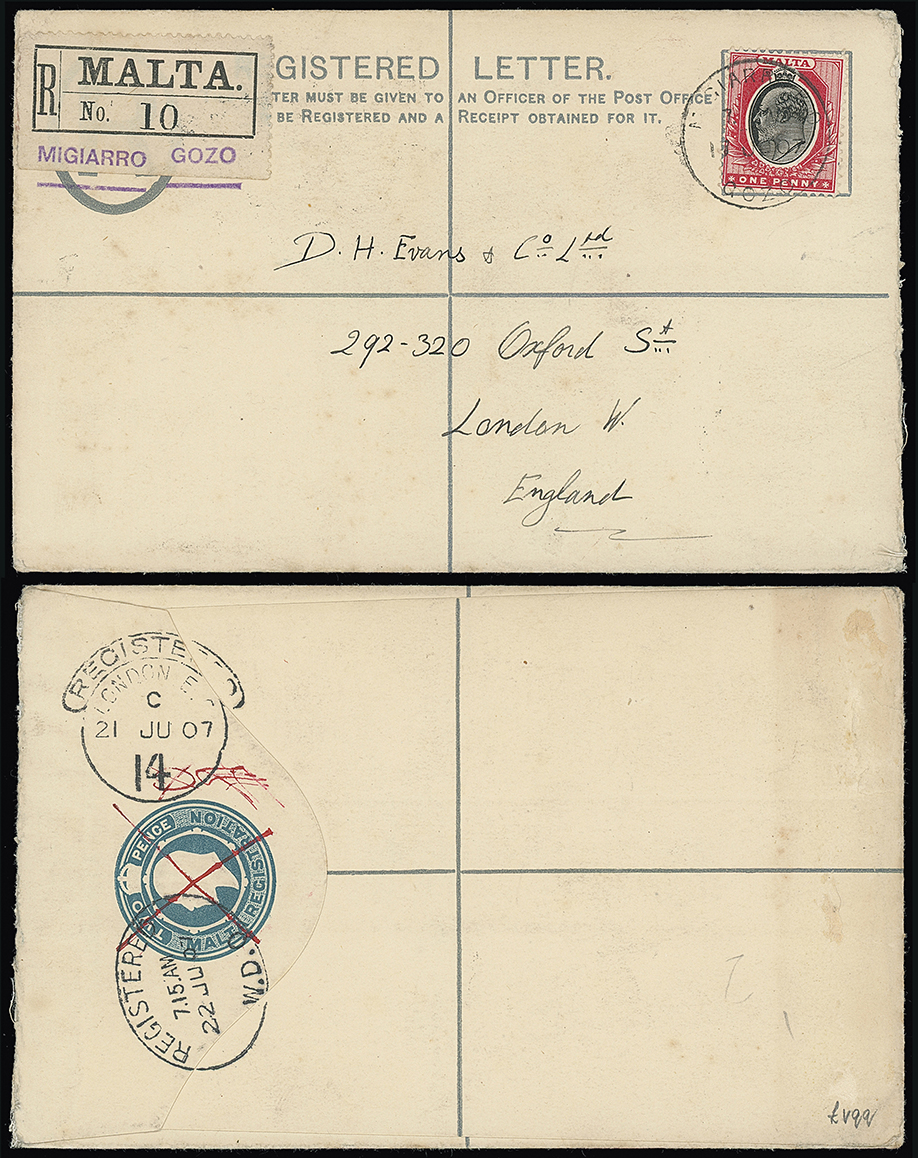 R MALTA.
No. 10
MIGIARRO GOZO
GISTERED LETTER.
TER MUST BE GIVEN TO AN OFFICER OF THE POST OFFICE
BE REGISTERED AND A RECEIPT OBTAINED FOR IT.
MALTA
ONE PENNY
GOZO
D. H. Evans & Co Ltd
292-320 Oxford St
London W.
England
REGISTERED
LONDON E.C
C
21 JU 07
14
TWO PENCE
MALTA REGISTRATION
REGISTERED
7.15.AM
22 JU
W.D.O